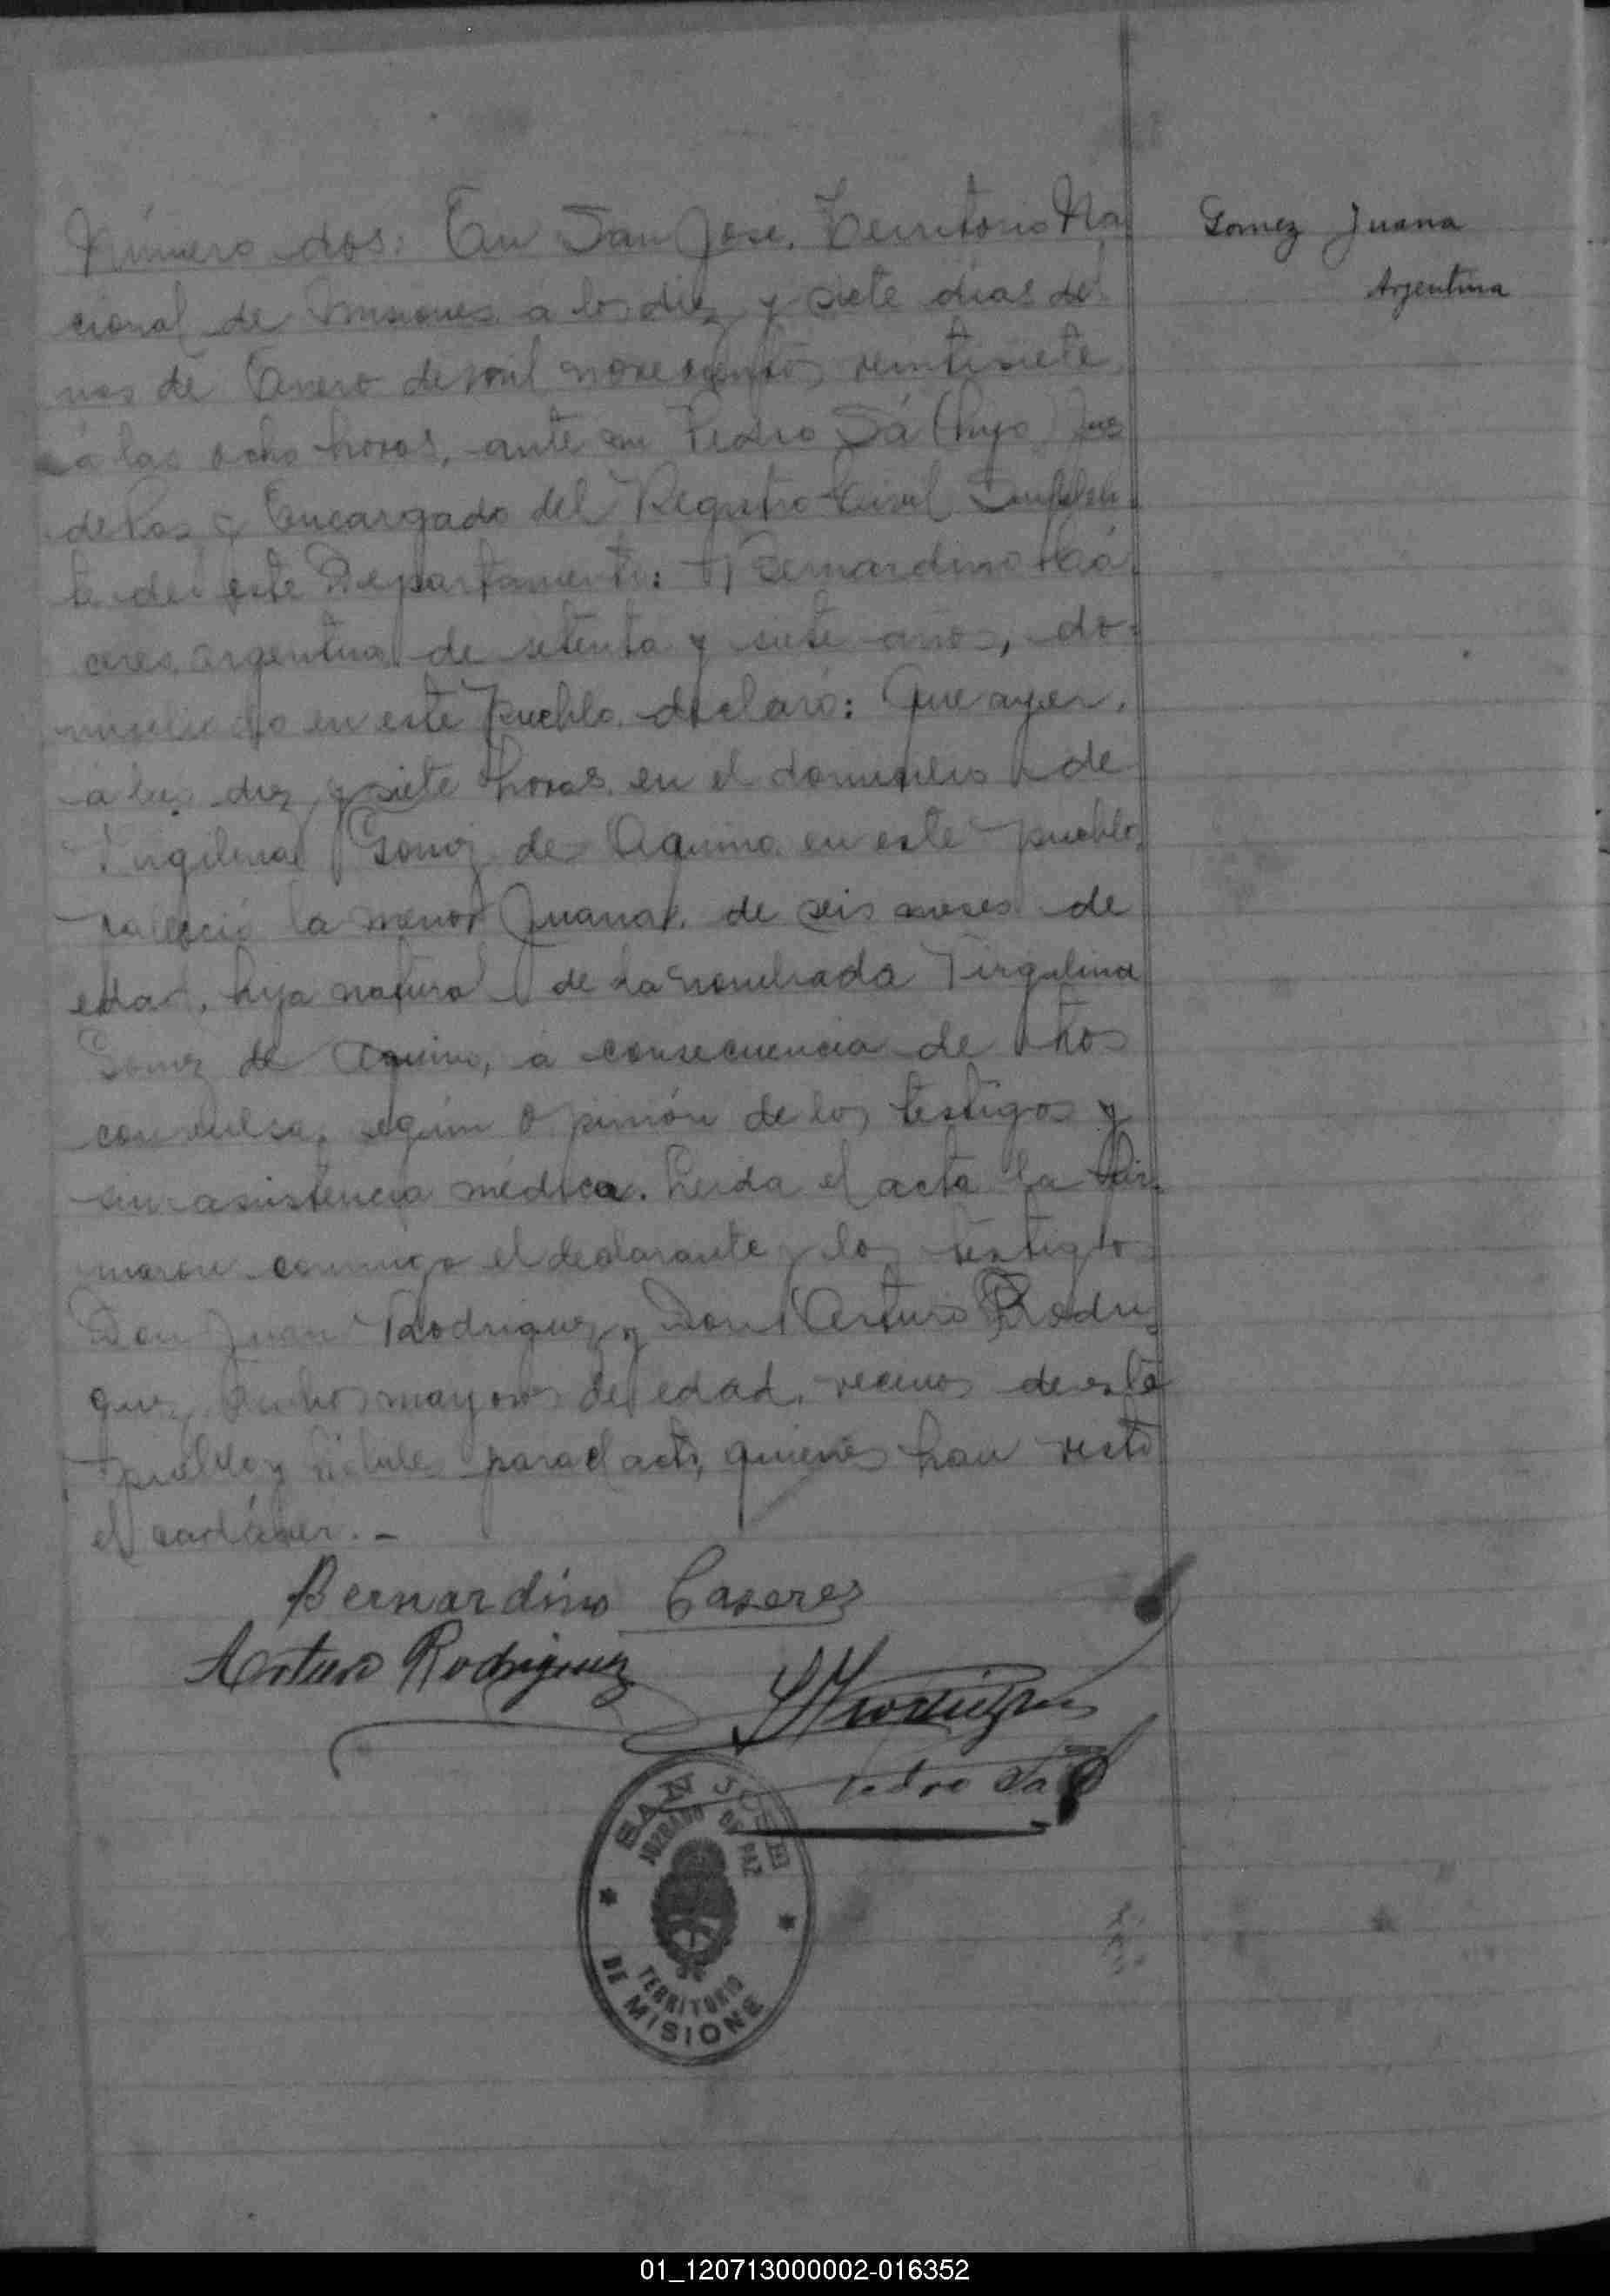 Número dos: En San Jose, Territorio Na
cional de Misiones a los diez y siete dias del
mes de Enero de mil novecientos veintisiete
a las ocho horas, ante mi Pedro Sá (hijo) Juez
de Paz y Encargado del Registro Civil Suplen
te de este Departamento: Bernardino Cá
ceres, argentino de setenta y siete años, do-
miciliado en este pueblo declaró: Que ayer,
a las diez y siete horas en el domicilio de
Gomez de Aquino en este pueblo,
falleció la menor Juana, de seis meses de
edad, hija natural de la nombrada
Gomez de Aquino, a consecuencia de tos
convulsa, según opinión de los testigos y
sin asistencia médica. Leida el acta la fir-
maron conmigo el declarante y los testigos
Don Juan Rodriguez y Don Arturo Rodri
guez, ambos mayores de edad, vecinos de este
pueblo y hábiles para el acto, quienes han visto
el cadáver. -
Gomez Juana
Argentina
Bernardino Caseres
Arturo Rodriguez
Pedro Sá
SAN JOSE
JUZGADO DE PAZ
TERRITORIO
DE MISIONE
01_120713000002-016352